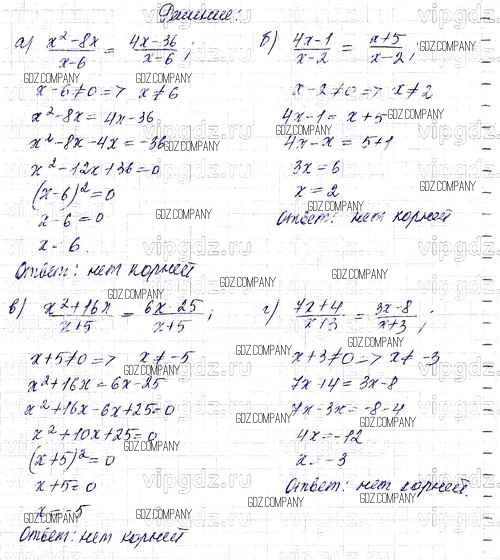 Решение:
а) x²-8x/x-6 = 4x-36/x-6 ;
x-6≠0 => x≠6
x²-8x=4x-36
x²-8x-4x=-36
x²-12x+36=0
(x-6)²=0
x-6=0
x=6.
Ответ: нет корней
б) 4x-1/x-2 = x+5/x-2 ;
x-2≠0 => x≠2
4x-1=x+5
4x-x=5+1
3x=6
x=2
Ответ: нет корней
в) x²+16x/x+5 = 6x-25/x+5 ;
x+5≠0 => x≠-5
x²+16x=6x-25
x²+16x-6x+25=0
x²+10x+25=0
(x+5)²=0
x+5=0
x=-5
Ответ: нет корней
г) 7x+4/x+3 = 3x-8/x+3 ;
x+3≠0 => x≠-3
7x+4=3x-8
7x-3x=-8-4
4x=-12
x=-3
Ответ: нет корней.
GDZ.COMPANY
vipgdz.ru